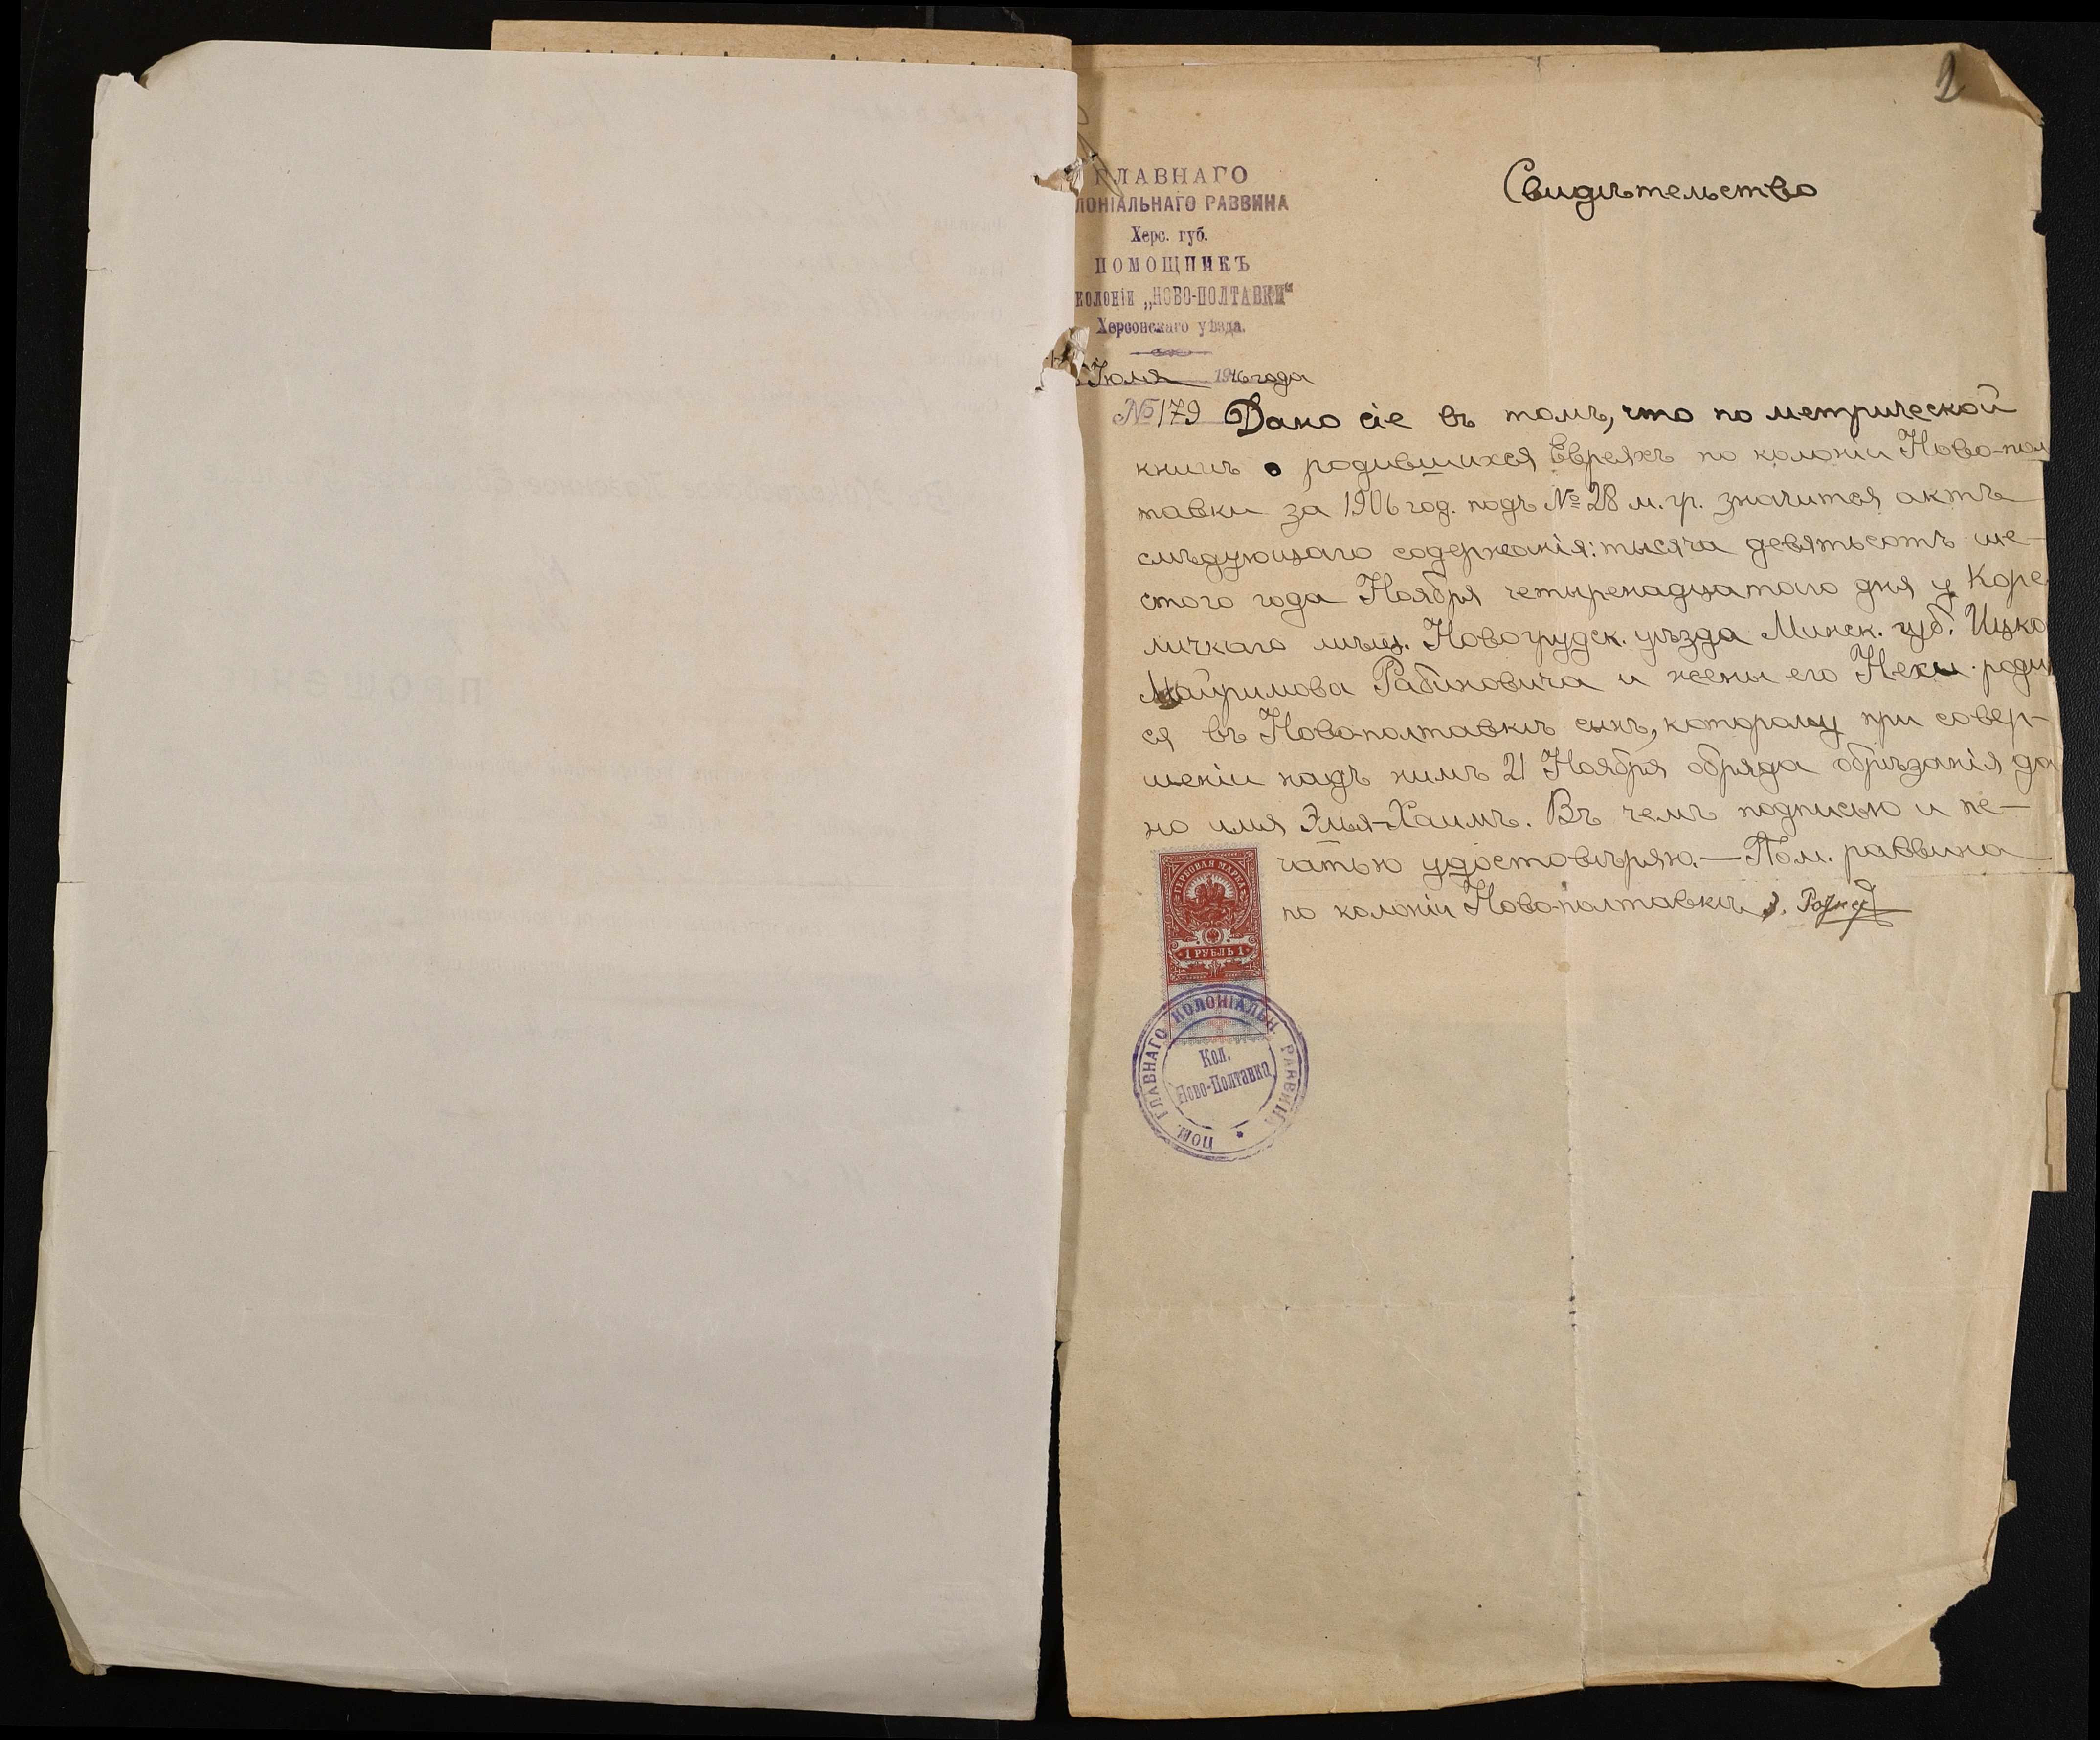 2
Свидѣтельство
ГЛАВНАГО
ЛОНІАЛЬНАГО РАВВИНА
Херс. губ.
ПОМОЩНИКЪ
колоніи „НОВО-ПОЛТАВКИ“
Херсонскаго уѣзда.
Іюля 1916 года
№ 179 Дано сіе въ томъ, что по метрической
книгѣ о родившихся Евреяхъ по колоніи Ново-пол
тавки за 1906 год. подъ № 28 м. гр. значится актъ
слѣдующаго содержанія: тысяча девятьсотъ ше-
стого года Ноября четыренадцатого дня у Коре
личкаго мѣщ. Новогрудск. уѣзда Минск. губ. Ицко
Майримова Рабиновича и жены его Нехи роди
ся въ Новополтавкѣ сынъ, которому при совер-
шеніи надъ нимъ 21 Ноября обряда обрѣзанія да
но имя Элья-Хаимъ. Въ чемъ подписью и пе-
чатью удостовѣряю. — Пом. раввина
по колоніи Ново-полтавкѣ
ГЕРБОВАЯ МАРКА
1 РУБЛЬ 1
ПОМ. ГЛАВНАГО КОЛОНІАЛЬН. РАВВИНА
Кол.
Ново-Полтавка